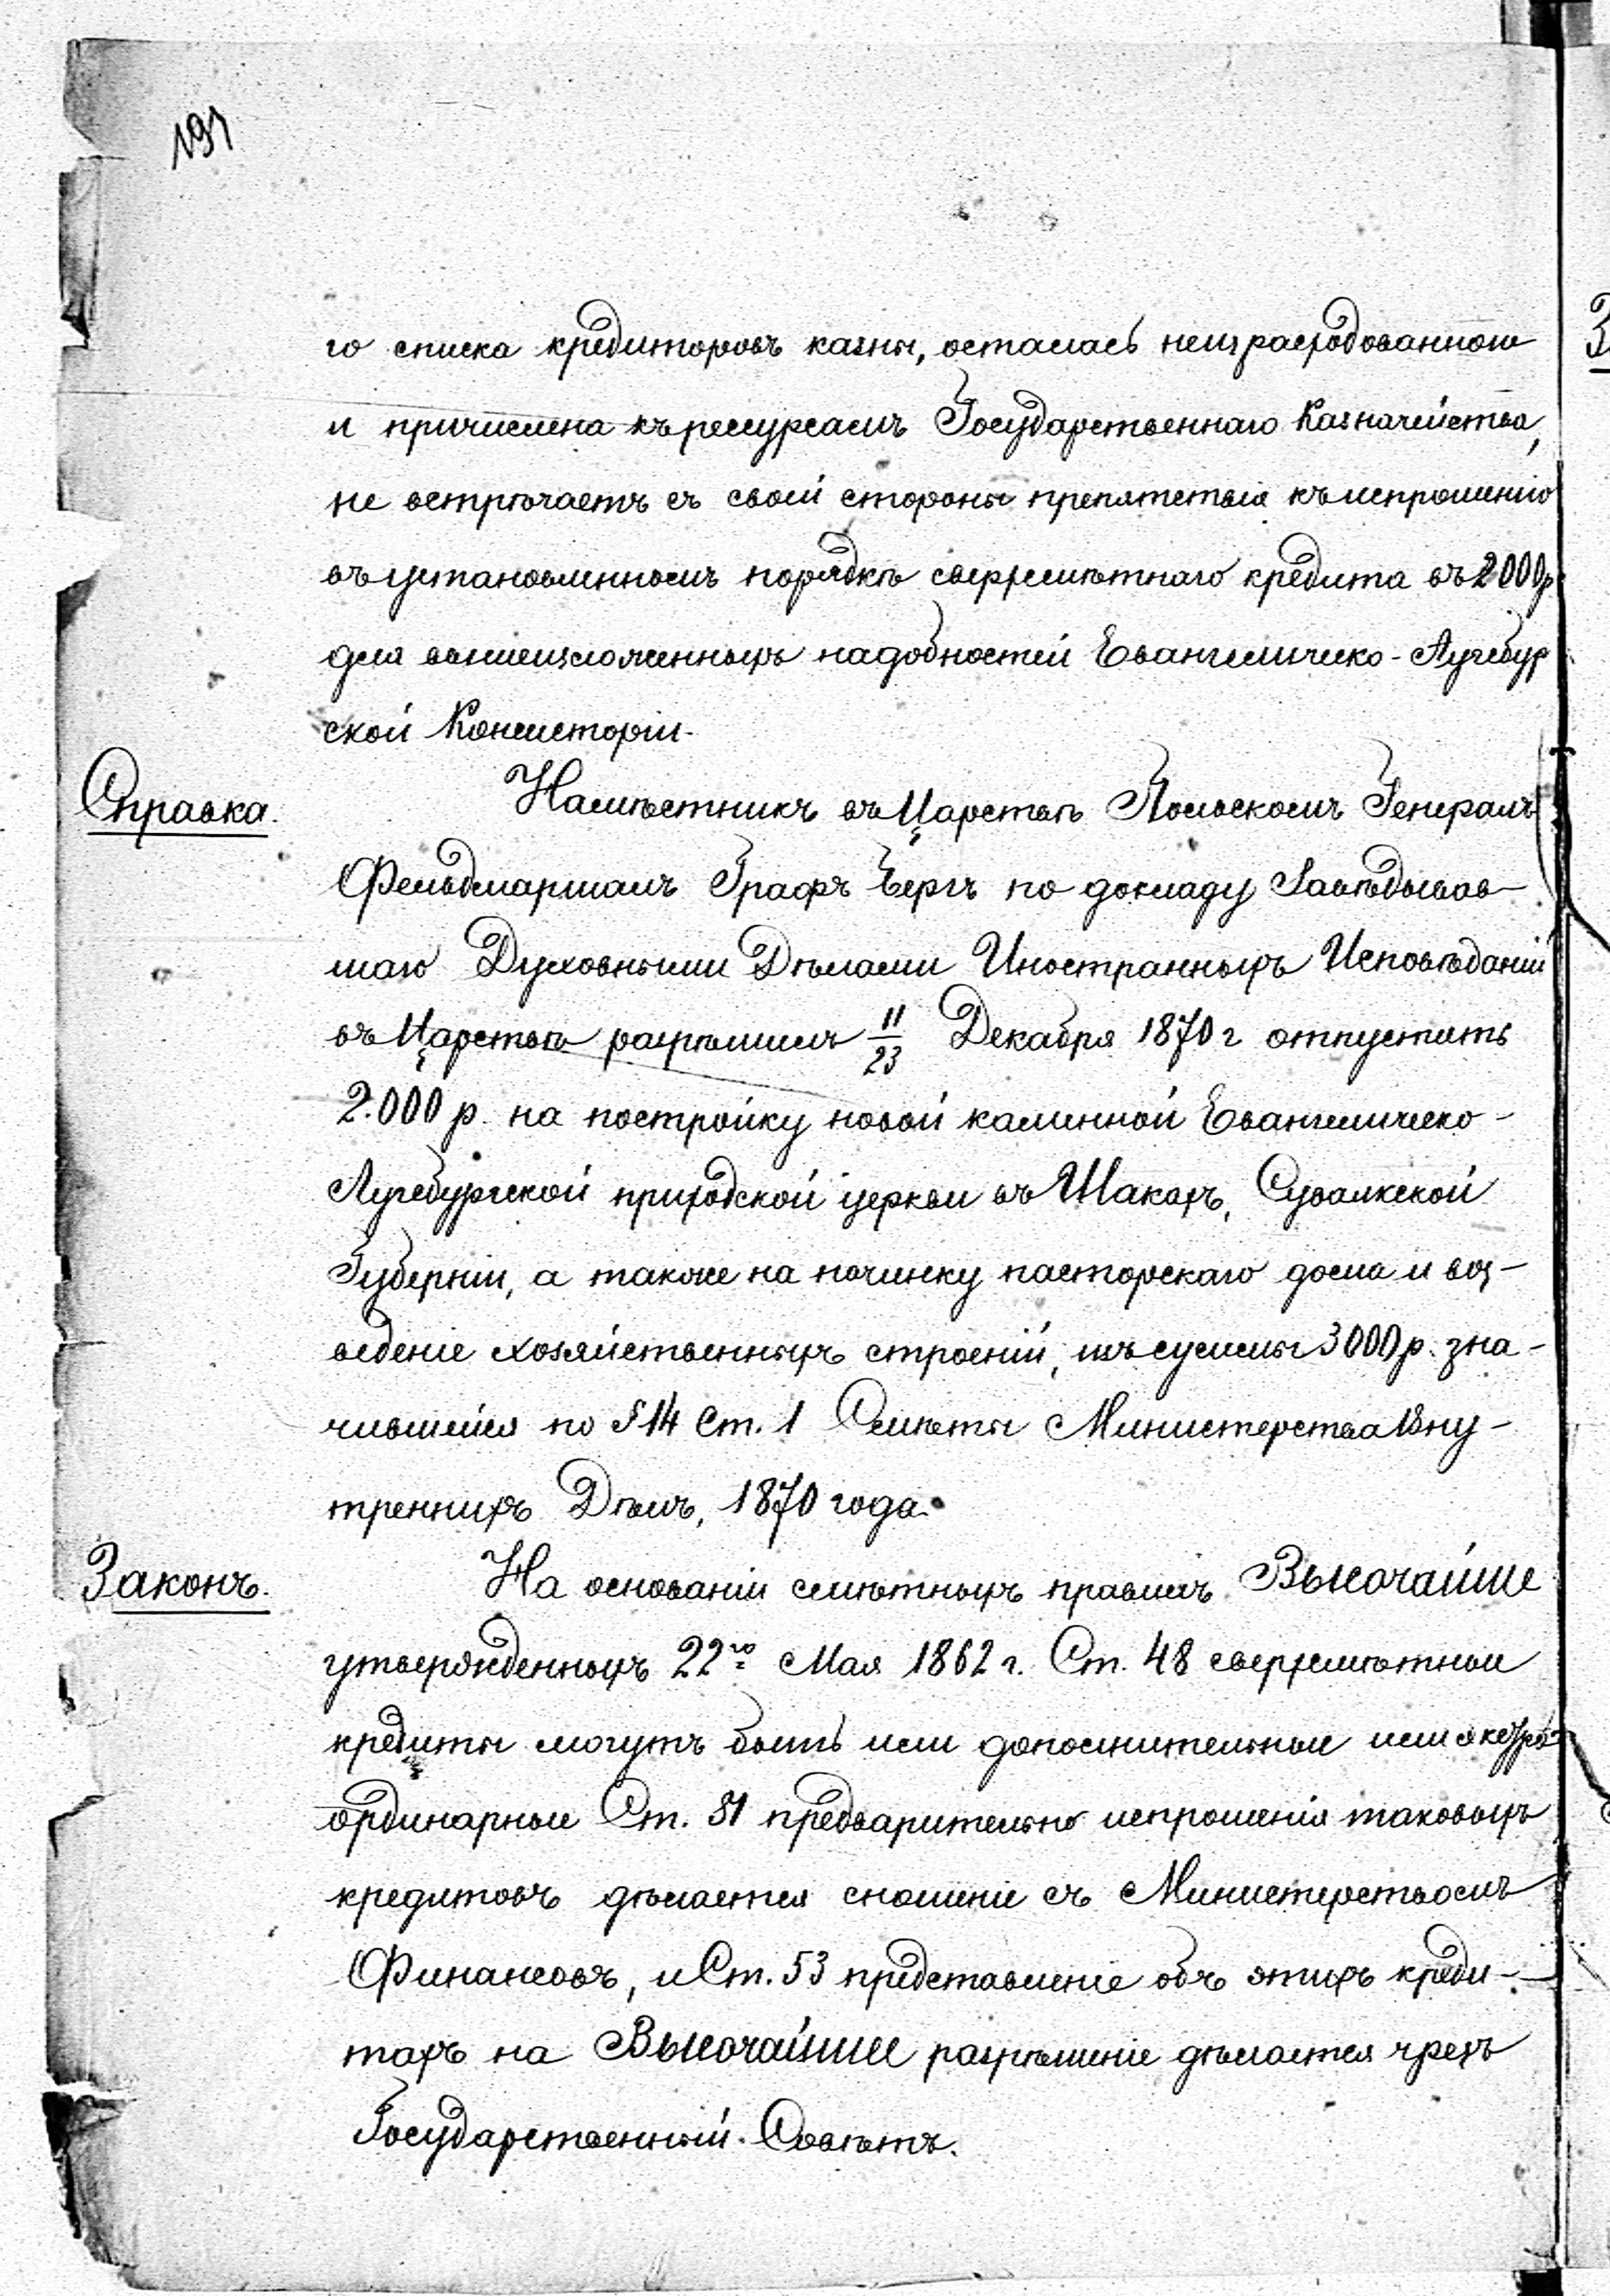 191
го списка кредиторовъ казны, осталась неизрасходованною
и причислена къ рессурсамъ Государственнаго Казначейства,
не встрѣчаетъ съ своей стороны препятствія къ испрошенію
въ установленномъ порядкѣ сверхсмѣтнаго кредита въ 2000 р.
для вышеизложенныхъ надобностей Евангелическо-Аугсбур
ской Консисторіи.
Справка.
Намѣстникъ въ Царствѣ Польскомъ Генералъ
Фельдмаршалъ Графъ Бергъ по докладу Завѣдывав-
шаго Духовными Дѣлами Иностранныхъ Исповѣданій
въ Царствѣ разрѣшилъ 11/23 Декабря 1870 г отпустить
2.000 р. на постройку новой каменной Евангелическо-
Аугсбургской приходской церкви въ Шакахъ, Сувалкской
Губерніи, а также на починку пасторскаго дома и воз-
веденіе хозяйственныхъ строеній, изъ суммы 3000 р. зна-
чившейся по § 14 Ст. 1 Смѣты Министерства Вну-
треннихъ Дѣлъ, 1870 года.
Законъ.
На основаніи смѣтныхъ правилъ ВЫСОЧАЙШЕ
утвержденныхъ 22го Мая 1862 г. Ст. 48 сверхсмѣтные
кредиты могутъ быть или дополнительные или экстра-
ординарные Ст. 51 предварительно испрошенія таковыхъ
кредитовъ дѣлается сношеніе съ Министерствомъ
Финансовъ, и Ст. 53 представленіе объ этихъ креди-
тахъ на ВЫСОЧАЙШЕЕ разрѣшеніе дѣлается чрезъ
Государственный Совѣтъ.